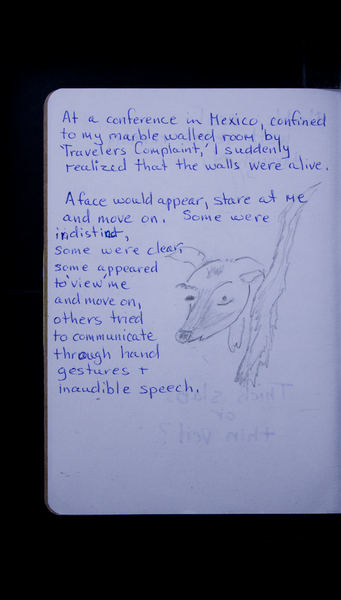 At a conference in Mexico, confined
to my marble walled room by
'Travelers Complaint,' I suddenly
realized that the walls were alive.
A face would appear, stare at me
and move on. Some were
indistinct,
some were clear,
some appeared
to 'view' me
and move on,
others tried
to communicate
through hand
gestures +
inaudible speech.
Thick slabs
or
thin veil?